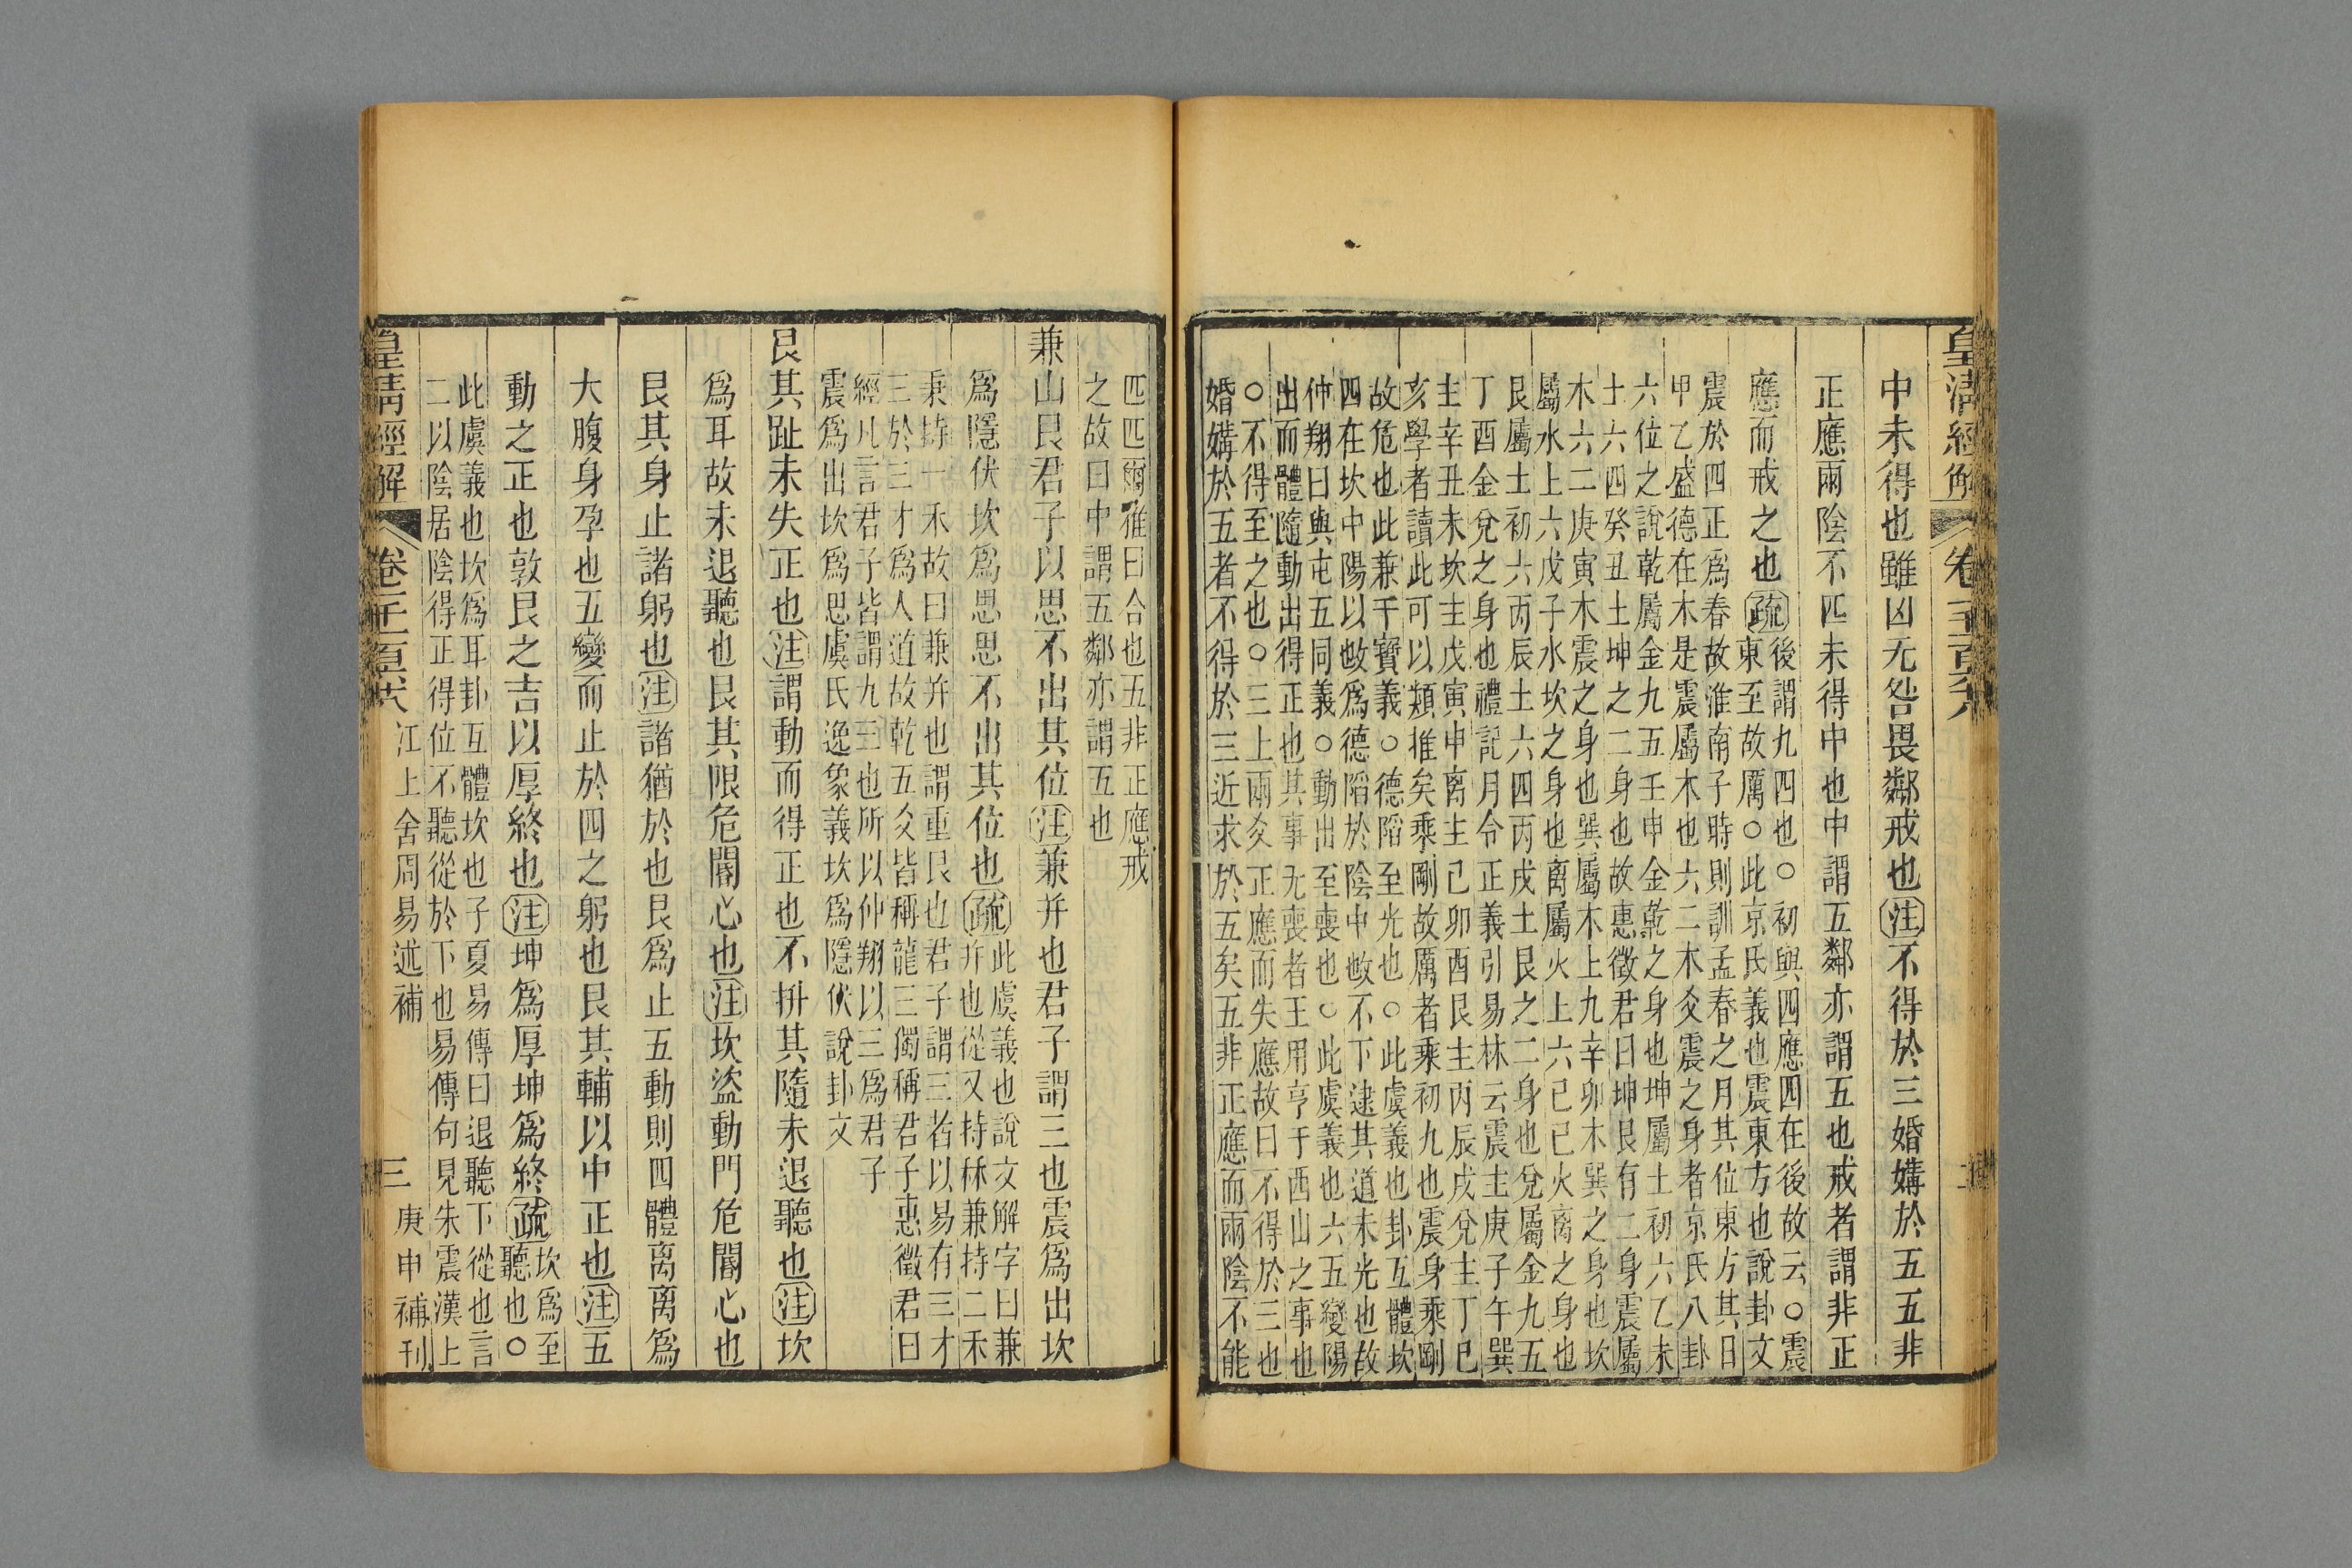 皇清經解
中未得也雖凶无咎畏鄰戒也注不得於三婚媾於五五非
正應兩陰不匹未得中也中謂五鄰亦謂五也戒者謂非正
應而戒之也疏後謂九四也○初與四應四在後故云○震
東至故厲○此京氏義也震東方也說卦文
震於四正爲春故淮南子時則訓孟春之月其位東方其日
甲乙盛德在木是震屬木也六二木爻震之身者京氏八卦
六位之說乾屬金九五壬申金乾之身也坤屬土初六乙未
土六四癸丑土坤之二身也故惠徵君曰坤艮有二身震屬
木六二庚寅木震之身也巽屬木上九辛卯木巽之身也坎
屬水上六戊子水坎之身也离屬火上六己巳火离之身也
艮屬土初六丙辰土六四丙戌土艮之二身也兌屬金九五
丁酉金兌之身也禮記月令正義引易林云震主庚子午巽
主辛丑未坎主戊寅申离主己卯酉艮主丙辰戌兌主丁巳
亥學者讀此可以類推矣乘剛故厲者乘初九也震身乘剛
故危也此兼干寶義○德陷至光也○此虞義也卦互體坎
四在坎中陽以㪅爲德陷於陰中㪅不下逮其道未光也故
仲翔曰與屯五同義○動出至喪也○此虞義也六五變陽
出而體隨動出得正也其事无喪者王用亨于西山之事也
○不得至之也○三上兩爻正應而失應故曰不得於三也
婚媾於五者不得於三近求於五矣五非正應而兩陰不能
匹匹爾雅曰合也五非正應戒
之故曰中謂五鄰亦謂五也
兼山艮君子以思不出其位注兼并也君子謂三也震爲出坎
爲隱伏坎爲思思不出其位也疏此虞義也說文解字曰兼
并也從又持秝兼持二禾
秉持一禾故曰兼并也謂重艮也君子謂三者以易有三才
三於三才爲人道故乾五爻皆稱龍三獨稱君子惠徵君曰
經凡言君子皆謂九三也所以仲翔以三爲君子
震爲出坎爲思虞氏逸象義坎爲隱伏說卦文
艮其趾未失正也注謂動而得正也不拚其隨未退聽也注坎
爲耳故未退聽也艮其限危閽心也注坎盜動門危閽心也
艮其身止諸躬也注諸猶於也艮爲止五動則四體离离爲
大腹身孕也五變而止於四之躬也艮其輔以中正也注五
動之正也敦艮之吉以厚終也注坤爲厚坤爲終疏坎爲至
聽也○
此虞義也坎爲耳卦互體坎也子夏易傳曰退聽下從也言
二以陰居陰得正得位不聽從於下也易傳句見朱震漢上
皇清經解
江上舍周易述補
三
庚申補刊